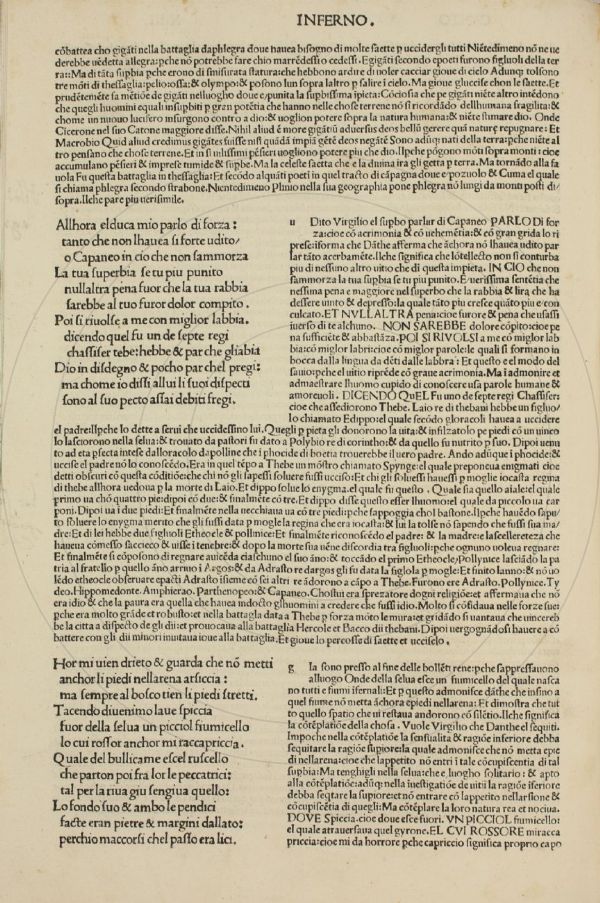 INFERNO.
cõbattea cho gigãti nella battaglia daphlegra doue hauea bisogno di molte saette p uccidergli tutti Niẽtedimeno nõ ne ue
derebbe uẽdetta allegra: pche nõ potrebbe fare chio marrẽdessi o cedessi. E gigãti secondo epoeti furono figluoli della ter
ra:: Ma di tãta supbia pche erono di smisurata statura: che hebbono ardire di uoler cacciar gioue di cielo Adunqȝ tolsono
tre mõti di thessaglia: pelio: ossa: & olympo: & posono lun sopra laltro p salire ĩ cielo. Ma gioue gluccise chon le saette. Et
prudẽtemẽte fa mẽtiõe de gigãti nelluogho doue e punita la supbissima ĩpieta: Cõciosia che pe gigãti niẽte altro intẽdono
che quegli huomini equali insupbiti p gran potẽtia che hanno nelle chose terrene nõ si ricordãdo dellhumana fragilita: &
chome un nuouo lucifero insurgono contro a dio: & uoglion potere sopra la natura humana: & niẽte stimare dio. Onde
Cicerone nel suo Catone maggiore disse. Nihil aliud ẽ more gigãtũ aduersus deos bellũ gerere quã naturȩ repugnare: Et
Macrobio Quid aliud credimus gigãtes fuisse nisi quãdã impiã gẽtẽ deos negãtẽ Sono adũqȝ nati della terra: pche niẽte al
tro pensano che chose terrene. Et in ĩ uilissimi pẽsieri uogliono potere piu che dio. Ilpche põgono mõti sopra monti: cioe
accumulano pẽsieri & imprese tumide & supbe. Ma la celeste saetta che e la diuina ira gli getta p terra. Ma tornãdo alla fa
uola Fu questa battaglia in thessaglia: Et secõdo alquãti poeti in quel tracto di cãpagna doue e pozuolo & Cuma el quale
si chiama phlegra secondo strabone. Nientedimeno Plinio nella sua geographia pone phlegra nõ lungi da monti posti di
sopra. Ilche pare piu uerisimile.
Allhora elduca mio parlo di forza:
tanto che non lhauea si forte udito/
o Capaneo in cio che non sammorza
La tua superbia se tu piu punito
nullaltra pena fuor che la tua rabbia
sarebbe al tuo furor dolor compito.
Poi si riuolse a me con miglior labbia.
dicendo quel fu un de septe regi
chassiser tebe: hebbe & par che gliabia
Dio in disdegno & pocho par chel pregi:
ma chome io dissi allui li suoi dispecti
sono al suo pecto assai debiti fregi.
u Dito Virgilio el supbo parlar di Capaneo PARLO Di for
za: cioe cõ acrimonia & cõ uehemẽtia: & cõ gran grida lo ri
prese: iforma che Dãthe afferma che ãchora nõ lhauea udito par
lar tãto acerbamẽte. Ilche significa che lõtellecto non si conturba
piu di nessuno altro uitio che di questa impieta. IN CIO che non
sammorza la tua supbia se tu piu punito. E uerissima sentẽtia che
nessima pena e maggiore nel superbo che la rabbia & lira che ha
dessere uinto & depresso: la quale tãto piu cresce quãto piu e con
culcato. ET NVLLALTRA pena: cioe furore & pena che usassi
iuerso di te alchuno. NON SAREBBE dolore cõpito: cioe pe
na sufficiẽte & abbastãza. POI SI RIVOLSI a me cõ miglor lab
bia: cõ miglor labri: cioe cõ miglor parole: le quali si formano in
bocca dalla lingua da dẽti dalle labbra: Et questo e el modo del
sauio: pche el uitio riprẽde cõ grãde acerbita. Ma i admonire et
admaestrare lhuomo cupido di conoscere usa parole humane &
amoreuoli. DICENDO QVEL Fu uno de septe regi Chassiser:
cioe che assediorono Thebe. Laio re di thebani hebbe un figluo/
lo chiamato Edippo: el quale secõdo gloracoli hauea a uccidere
el padre: ilpche lo dette a serui che uccidessino lui. Quegli p pieta gli donorono la uita: & ifilzatolo pe piedi cõ un uinco
lo lasciorono nella selua: & trouato da pastori fu dato a Polybio re di corintho: & da quello fu nutrito p suo. Dipoi uenu
to ad eta pfecta intese dalloracolo dapolline che i phocide di boetia trouerebbe il uero padre. Ando adũque i phocide: &
uccise el padre nõ lo conoscẽdo. Era in quel tẽpo a Thebe un mõstro chiamato Spynge: el quale preponeua enigmati cioe
detti obscuri cõ questa cõditiõe: che chi nõ gli sapessi soluere fussi ucciso: Et chi gli soluessi hauessi p moglie iocasta regina
di thebe allhora uedoua p la morte di Laio. Et edippo solue lo enygma. el quale fu questo. Quale sia quello aiale: el quale
primo ua chõ quattro piedi: poi cõ due: & finalmẽte cõ tre. Et dippo disse questo esser lhuomo: el quale da piccolo ua car
poni. Dipoi ua i due piedi: Et finalmẽte nella uecchiaia ua cõ tre piedi: pche sappoggia chol bastone. Ilpche hauẽdo sapu/
to soluere lo enygma merito che gli fussi data p mogle la regina che era iocasta: & lui la tolse nõ sapendo che fussi sua ma/
dre: Et di lei hebbe due figluoli Etheocle & pollinice: Et finalmẽte riconoscẽdo el padre: & la madre: la scellereteza che
haueua cõmesso saccieco & uisse i tenebre: & dopo la morte sua uẽne discordia tra figluoli: pche ognuno uoleua regnare:
Et finalmẽte si cõposono di regnare a uicẽda ciaschuno el suo ãno: & toccãdo el primo Etheocle/Pollynice lasciãdo la pa
tria al fratello p quello ãno arriuo i Argos: & da Adrasto re dargos gli fu data la figlola p mogle: Et finito lanno: & nõ uo/
lẽdo etheocle obseruare epacti Adrasto isieme cõ sei altri re ãdorono a cãpo a Thebe. Furono ere Adrasto. Pollynice. Ty
deo. Hippomedonte. Amphierao. Parthenopeo: & Capaneo. Chostui era sprezatore dogni religiõe: et affermaua che nõ
era idio & che la paura era quella che hauea indocto glhuomini a credere che fussi idio. Molto si cõfidaua nelle forze sue:
pche era molto grãde et robusto: et nella battaglia data a Thebe p forza mõto le mura: et gridãdo si uantaua che uincereb
be la citta a dispecto de gli dii: et prouocaua alla battaglia Hercole et Bacco dii thebani. Dipoi uergognãdosi hauere a cõ
battere con gli dii minori inuitaua ioue alla battaglia. Et gioue lo percosse di saette et ucciselo.
Hor mi uien drieto & guarda che nõ metti
anchor li piedi nellarena arsiccia:
ma sempre al bosco tien li piedi stretti.
Tacendo diuenimo laue spiccia
fuor della selua un picciol fiumicello
lo cui rossor anchor mi raccapriccia.
Quale del bullicame escel ruscello
che parton poi fra lor le peccatrici:
tal per la riua giu sengiua quello:
Lo fondo suo & ambo le pendici
facte eran pietre & margini dallato:
perchio maccorsi chel passo era lici.
g Ia sono presso al fine delle bollẽti rene: pche sappressauono
alluogo Onde della selua esce un fiumicello del quale nasca
no tutti e fiumi ifernali: Et p questo admonisce dãthe che insino a
quel fiume nõ metta ãchora epiedi nellarena: Et dimostra che tut
to quello spatio che ni restaua andorono cõ silẽtio. Ilche significa
la cõtẽplatiõe della chosa. Vuole Virgilio che Danthe el seguiti.
Impoche nella cõtẽplatiõe la sensualita & ragiõe inferiore debba
sequitare la ragiõe supiore: la quale admonisce che nõ metta epie
di nellarena: cioe che lappetito nõ entri i tale cõcupiscentia di tal
supbia: Ma tenghigli nella selua: che e luogho solitario: & apto
alla cõtẽplatiõe: adũqȝ nella inestigatiõe de uitii la ragiõe iferiore
debba seqtare la supiore: et nõ entrare cõ lappetito nellarsione &
cõcupiscẽtia di quegli: Ma cõtẽplare la loro natura rea et nociua.
DOVE Spiccia: cioe doue esce fuori. VN PICCIOL fiumicello:
el quale atrauersaua quel gyrone. EL CVI ROSSORE miracca
priccia: cioe mi da horrore pche capriccio significa proprio capo